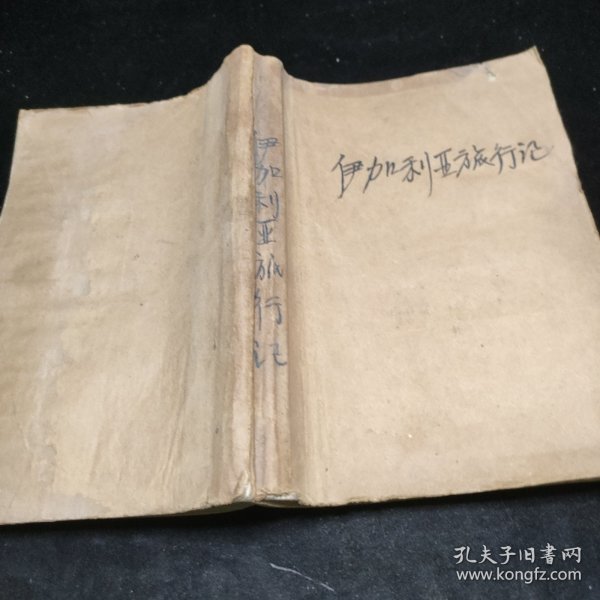 伊加利亚旅行记
伊加利亚旅行记
孔夫子旧书网
www.kongfz.com